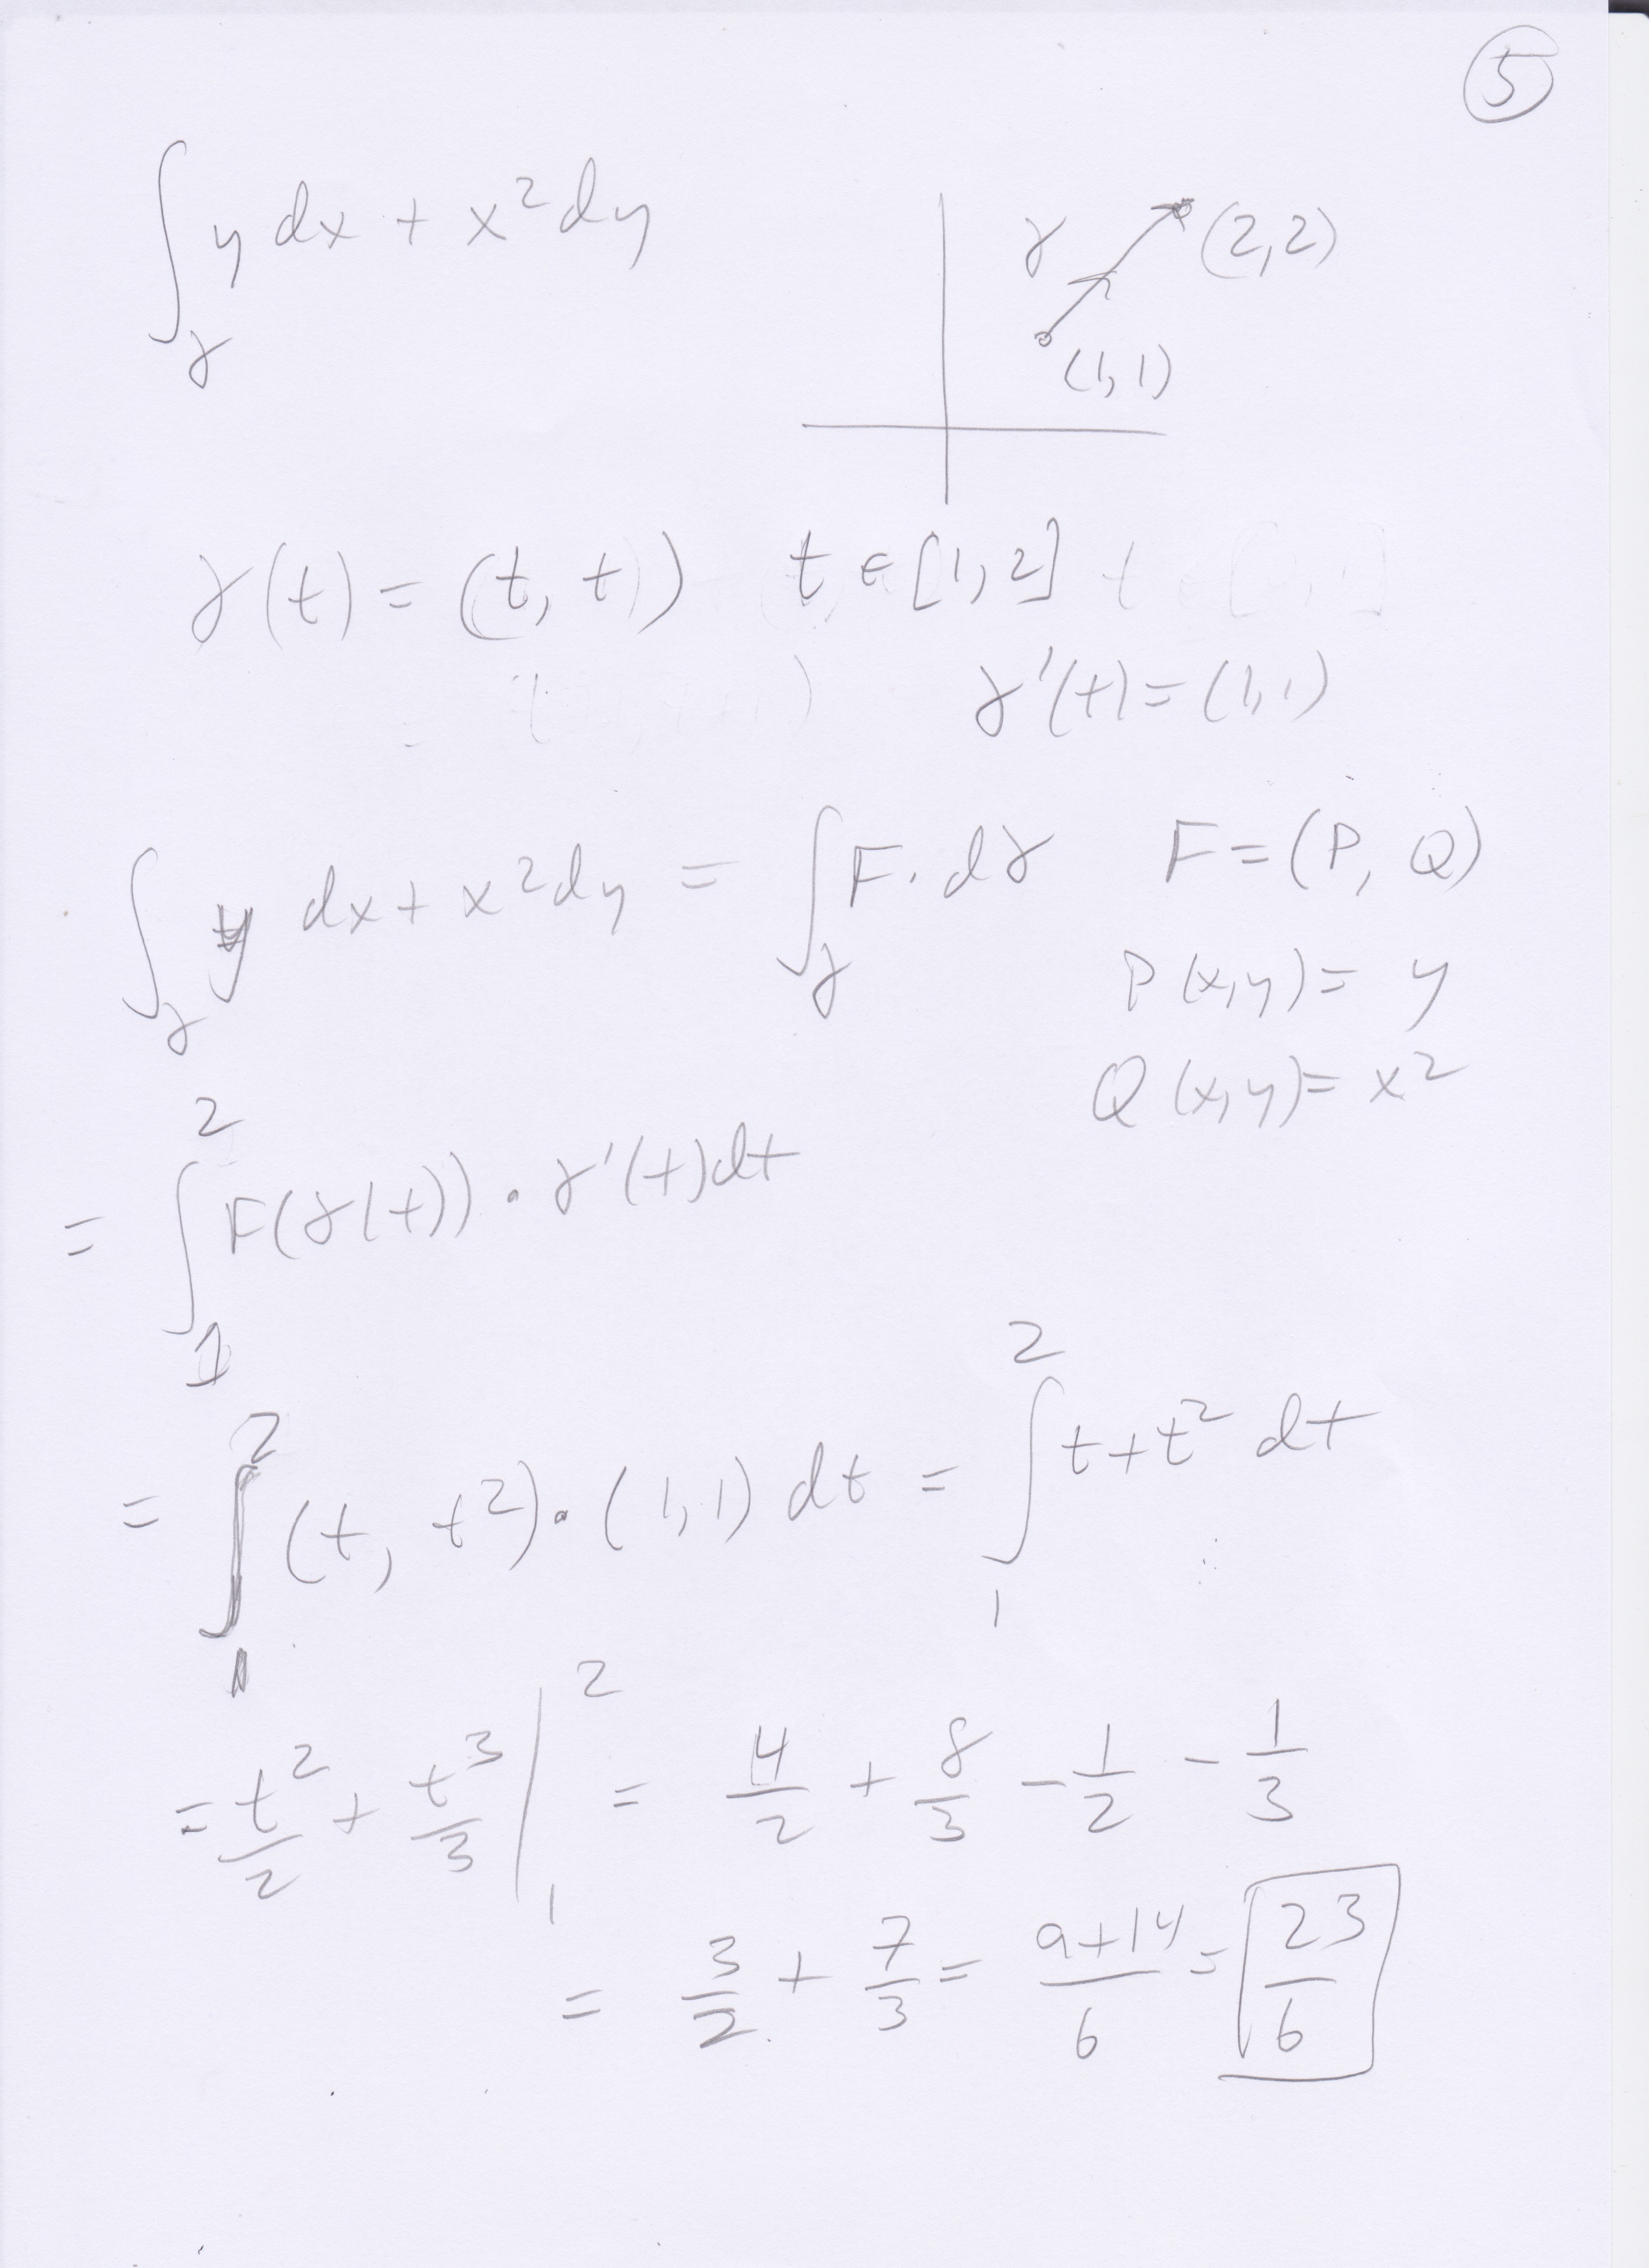 5
∫_γ y dx + x² dy
γ (2,2)
(1,1)
γ(t) = (t, t) t ∈ [1,2]
γ'(t) = (1,1)
∫_γ y dx + x² dy = ∫_γ F · dγ F = (P, Q)
P(x,y) = y
Q(x,y) = x²
= ∫_1^2 F(γ(t)) · γ'(t) dt
= ∫_1^2 (t, t²) · (1,1) dt = ∫_1^2 t + t² dt
= t²/2 + t³/3 |_1^2 = 4/2 + 8/3 - 1/2 - 1/3
= 3/2 + 7/3 = 9+14/6 = 23/6